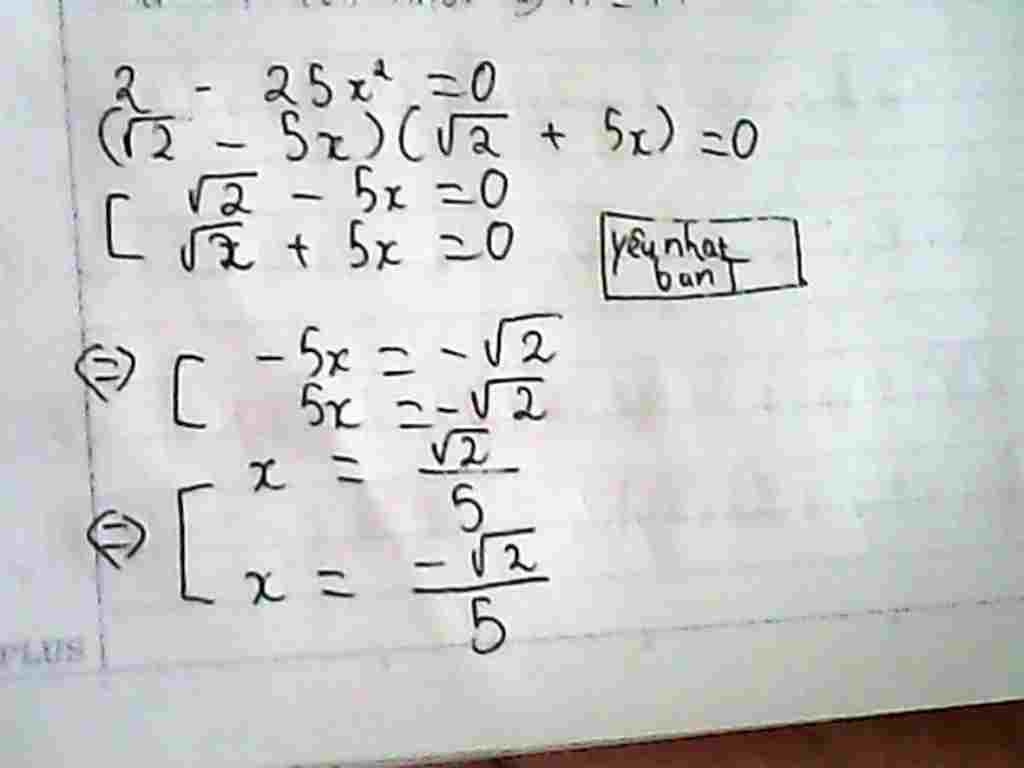 2 - 25x² = 0
(√2 - 5x)(√2 + 5x) = 0
[ √2 - 5x = 0
√2 + 5x = 0
yêu nhat
ban
⇔ [ -5x = -√2
5x = -√2
⇔ [ x = √2/5
x = -√2/5
PLUS